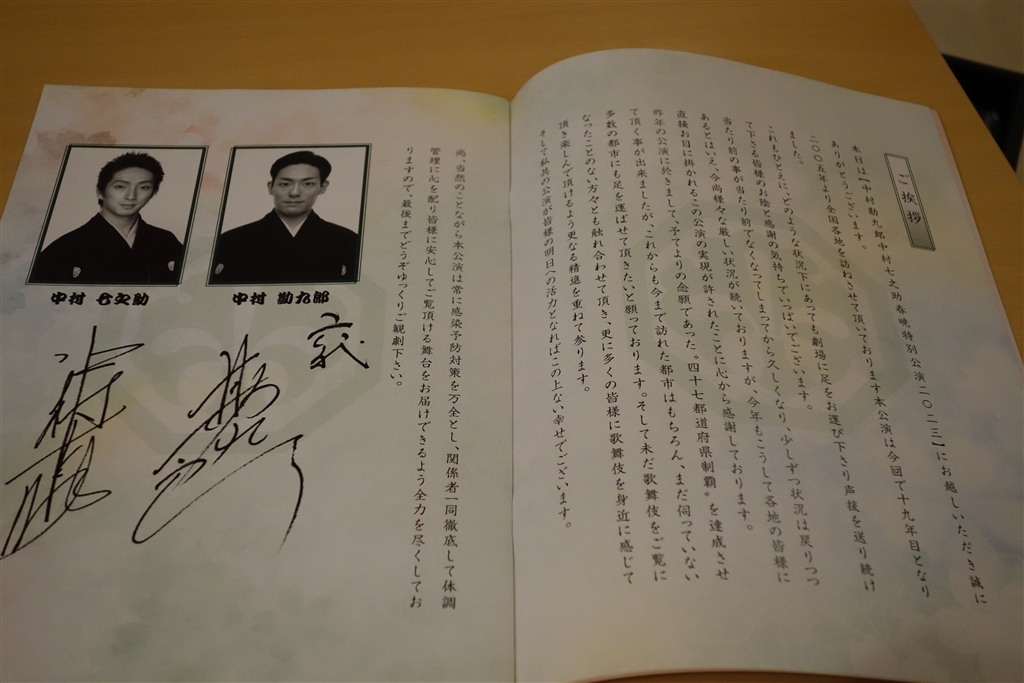 ご挨拶
本日は『中村勘九郎中村七之助春暁特別公演二〇二三』にお越しいただき誠に
ありがとうございます。
二〇〇五年より全国各地を訪ねさせて頂いております本公演は今回で十九年目となり
ました。
これもひとえに、どのような状況下にあっても劇場に足をお運び下さり声援を送り続け
て下さる皆様のお陰と感謝の気持ちでいっぱいでございます。
当たり前の事が当たり前でなくなってしまってから久しくなり、少しずつ状況は戻りつつ
あるとはいえ、今尚様々な厳しい状況が続いておりますが、今年もこうして各地の皆様に
直接お目に掛かれるこの公演の実現が許されたことに心から感謝しております。
昨年の公演に於きまして、予てよりの念願であった〝四十七都道府県制覇〟を達成させ
て頂く事が出来ましたが、これからも今まで訪れた都市はもちろん、まだ伺っていない
多数の都市にも足を運ばせて頂きたいと願っております。そして未だ歌舞伎をご覧に
なったことのない方々とも触れ合わせて頂き、更に多くの皆様に歌舞伎を身近に感じて
頂き楽しんで頂けるよう更なる精進を重ねて参ります。
そして私共の公演が皆様の明日への活力となればこの上ない幸せでございます。
尚、当然のことながら本公演は常に感染予防対策を万全とし、関係者一同徹底して体調
管理に心を配り皆様に安心してご覧頂ける舞台をお届けできるよう全力を尽くしてお
りますので、最後までどうぞゆっくりご観劇下さい。
中村 勘九郎
中村 七之助